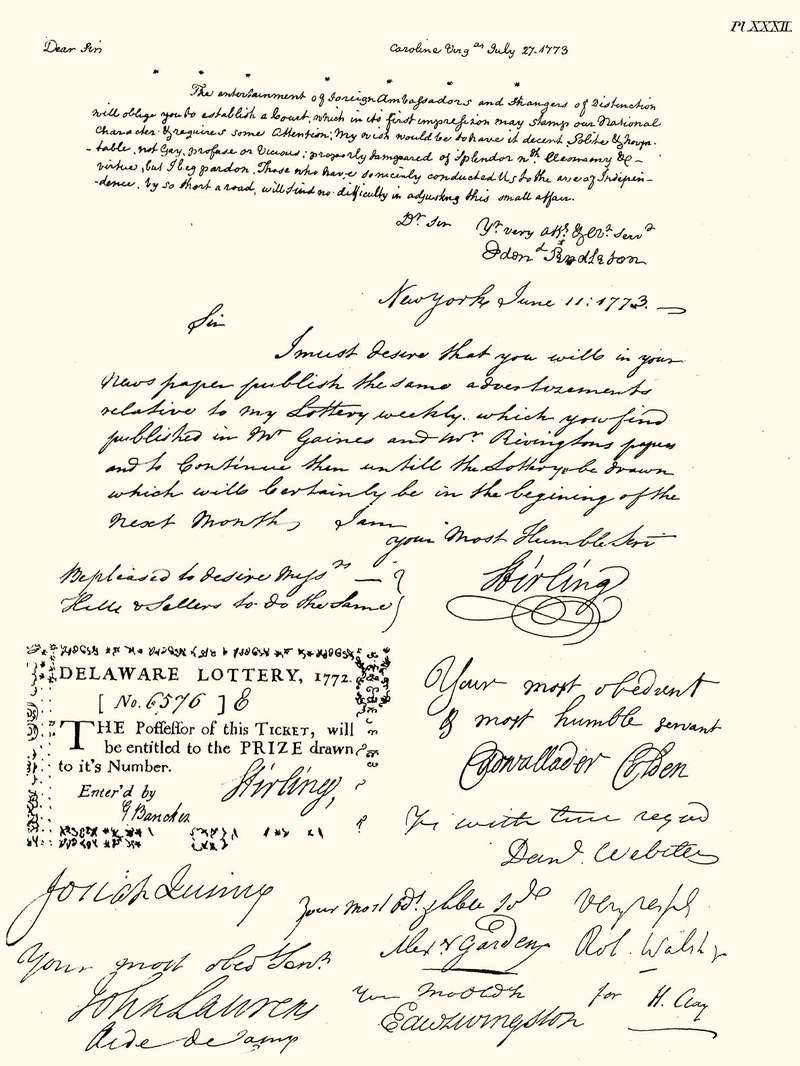 Pl XXXII.
Dear Sir
Caroline Virg.ª July 27. 1773
The entertainment of foreign Ambassadors and Strangers of Distinction
will oblige you to establish a Court, which in its first impression may stamp our National
Character & requires some Attention; My wish would be to have it decent Polite &
-table, not Gay, profuse or Vicious; properly of Splendor &
virtue, but I beg pardon. Those who have conducted Us to the of Indepen-
-dence, by so short a road, will find no difficulty in adjusting this small affair.
Dr Sir Yr very & servt
Edmd Pendleton
New york June 11: 1773.
Sir
I must desire that you will in your
News paper publish the same advertizements
relative to my Lottery weekly. which you find
published in Mr Gaines and Mr Rivingtons papers
and to Continue them untill the Lottery be drawn
which will Certainly be in the begining of the
next Month, I am
your Most Humble Servt
Stirling
Be pleased to desire Messrs
Halls & Sellers to do the Same
DELAWARE LOTTERY, 1772.
[ No. 6576 ] E
THE Possessor of this TICKET, will
be entitled to the PRIZE drawn
to it's Number.
Enter'd by
Stirling,
Bancker
Your most obedient
& most humble servant
Cadwallader Colden
with true regard
Danl. Webster
Josiah Quincy
Your most obt. hble
Alexr Garden
very respy
Rob. Walsh Jr
Your most obedt Servt.
John Laurens
Aide de camp
Your Most Obdt
Edw Livingston
for H. Clay